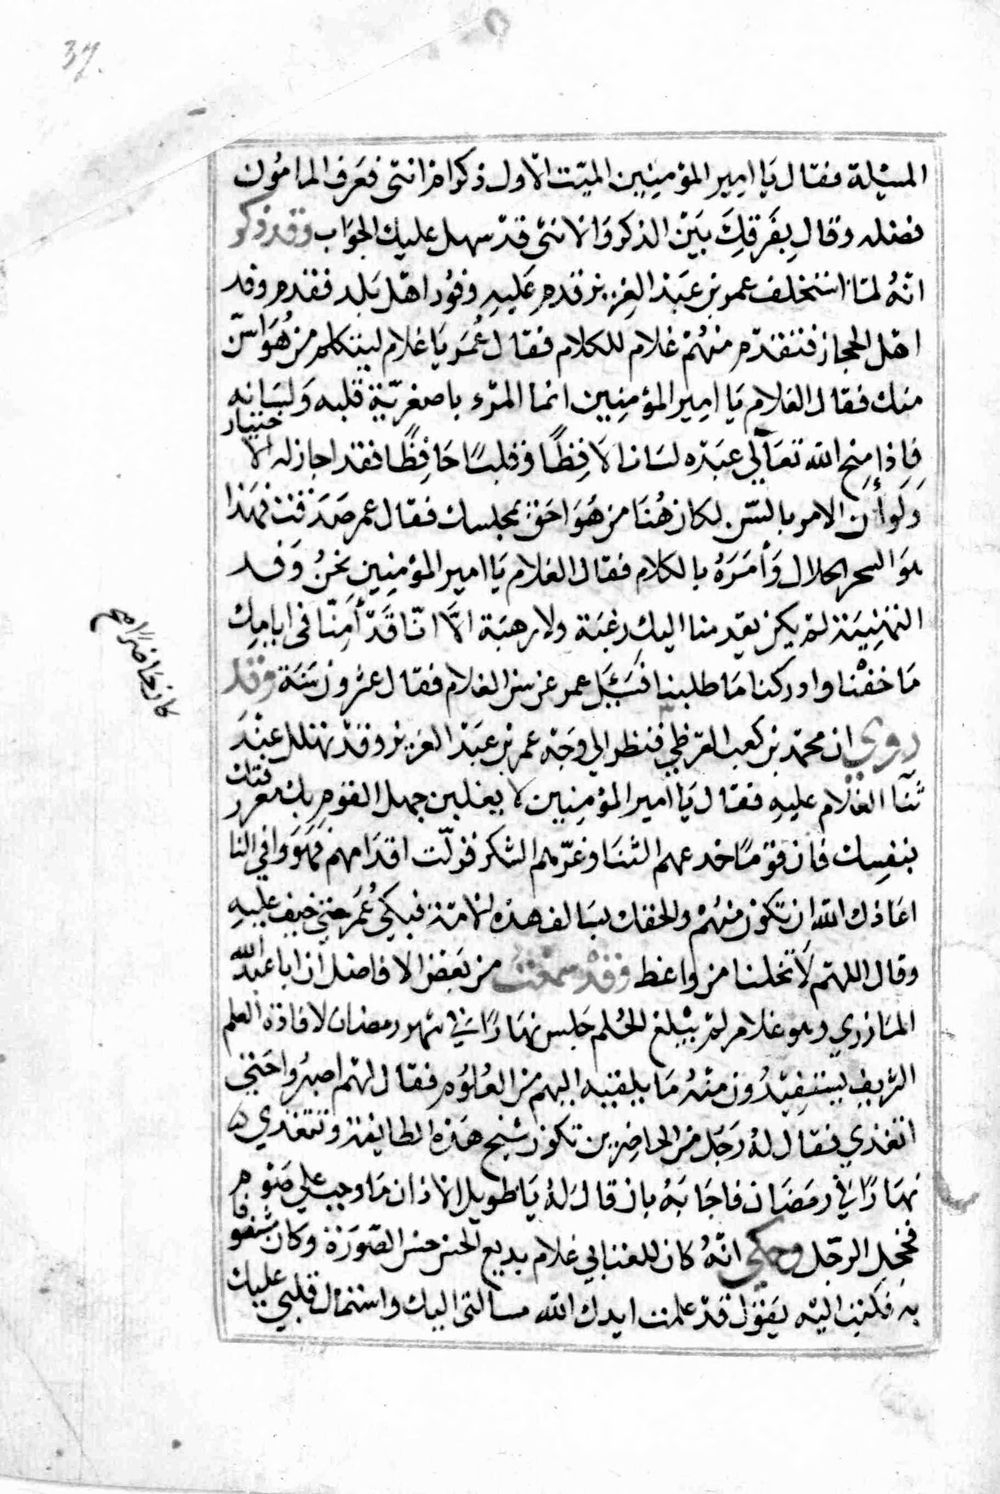 37.
المسئلة فقال يا امير المؤمنين الميت الاول ذكر ام انثى فعرف المامون
فضله وقال بفرقك بين الذكر والانثى قد سهل عليك الجواب وقد ذكر
انه لما استخلف عمر بن عبد العزيز قدم عليه وفود اهل بلد فقدم وفد
اهل الحجاز فتقدم منهم غلام للكلام فقال عمر يا غلام ليتكلم من هو اسن
منك فقال الغلام يا امير المؤمنين انما المرء باصغريه قلبه ولسانه
فاذا منح الله تعالى عبده لسانا لافظا وقلبا حافظا فقد اجاز له الاختيار
ولو أن الامر بالسن لكان هنا من هو احق بمجلسك فقال عمر صدقت فهذا
هو السحر الحلال وأمره بالكلام فقال الغلام يا امير المؤمنين نحن وفد
التهنية لم يكن يقد منا اليك رغبة ولا رهبة الا انا قد أمنا في ايامك
ما خفنا وادركنا ما طلبنا فسئل عمر عن سن الغلام فقال عشرون سنة وقد
روي ان محمد بن كعب القرظي فنظر الي وجه عمر بن عبد العزيز وقد تهلل عند
ثنا الغلام عليه فقال يا امير المؤمنين لا يغلبن جهل القوم بك معرفتك
بنفسك فان قوما خدعهم الثنا وغرهم الشكر فزلت اقدامهم فهووا في النا
اعاذك الله ان تكون منهم والحقك بسالف هذه الامة فبكي عمر حتى خيف عليه
وقال اللهم لا تخلنا من واعظ وقد سمعت من بعض الافاضل ان ابا عبد الله
المازري وهو غلام لم يبلغ الحلم جلس نهارا في شهر رمضان لافادة العلم
الشريف يستفيدون منه ما يلقيه اليهم من العلوم فقال لهم اصبروا حتي
اتغدي فقال له رجل من الحاضرين تكون شيخ هذه الطايفة وتتغدي
نهارا في رمضان فاجابه بان قال له يا طويل الاذان ما وجب علي صوم
فخجل الرجل وحكي انه كان للعتابي غلام بديع الحسن حسن الصورة وكان مشغوفا
به فكتب اليه يقول قد علمت ايدك الله مسالتى اليك واشتمال قلبي عليك
كان حاضرا مع